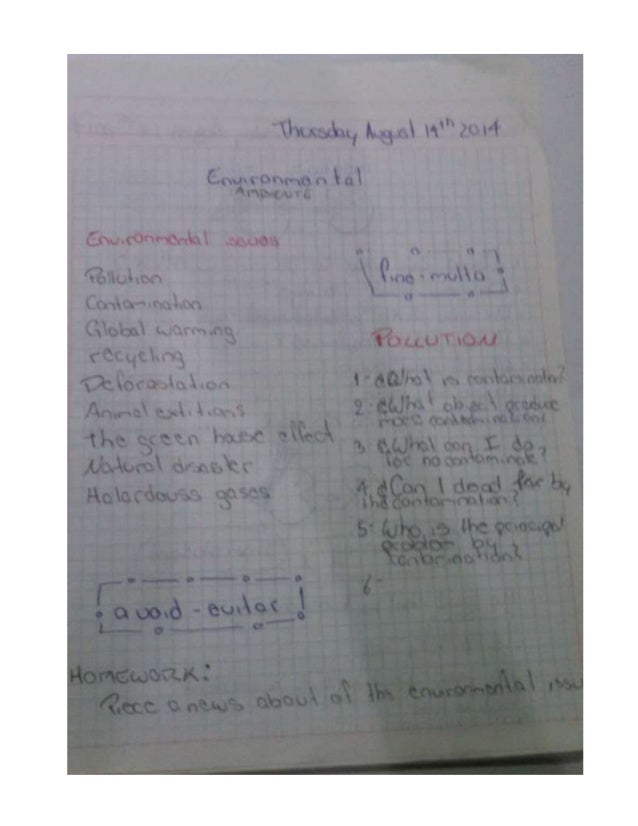 Thursday August 14th 2014
Environmental
AMBIENTE
Environmental issues
Pollution
Contamination
Global warming
recycling
Deforastation
Animal extitions
the green hause effect
Natural disaster
Halardouss gases
avoid - evitar
fine - multa
POLLUTION
1- ¿What is contamination?
2- ¿What object produce
more contamination?
3 ¿What can I do
for no contaminate?
4 ¿Can I dead for by
the contamination?
5- Who is the principal
problem by
6-
HOMEWORK:
Piece a news about of the environmental issu